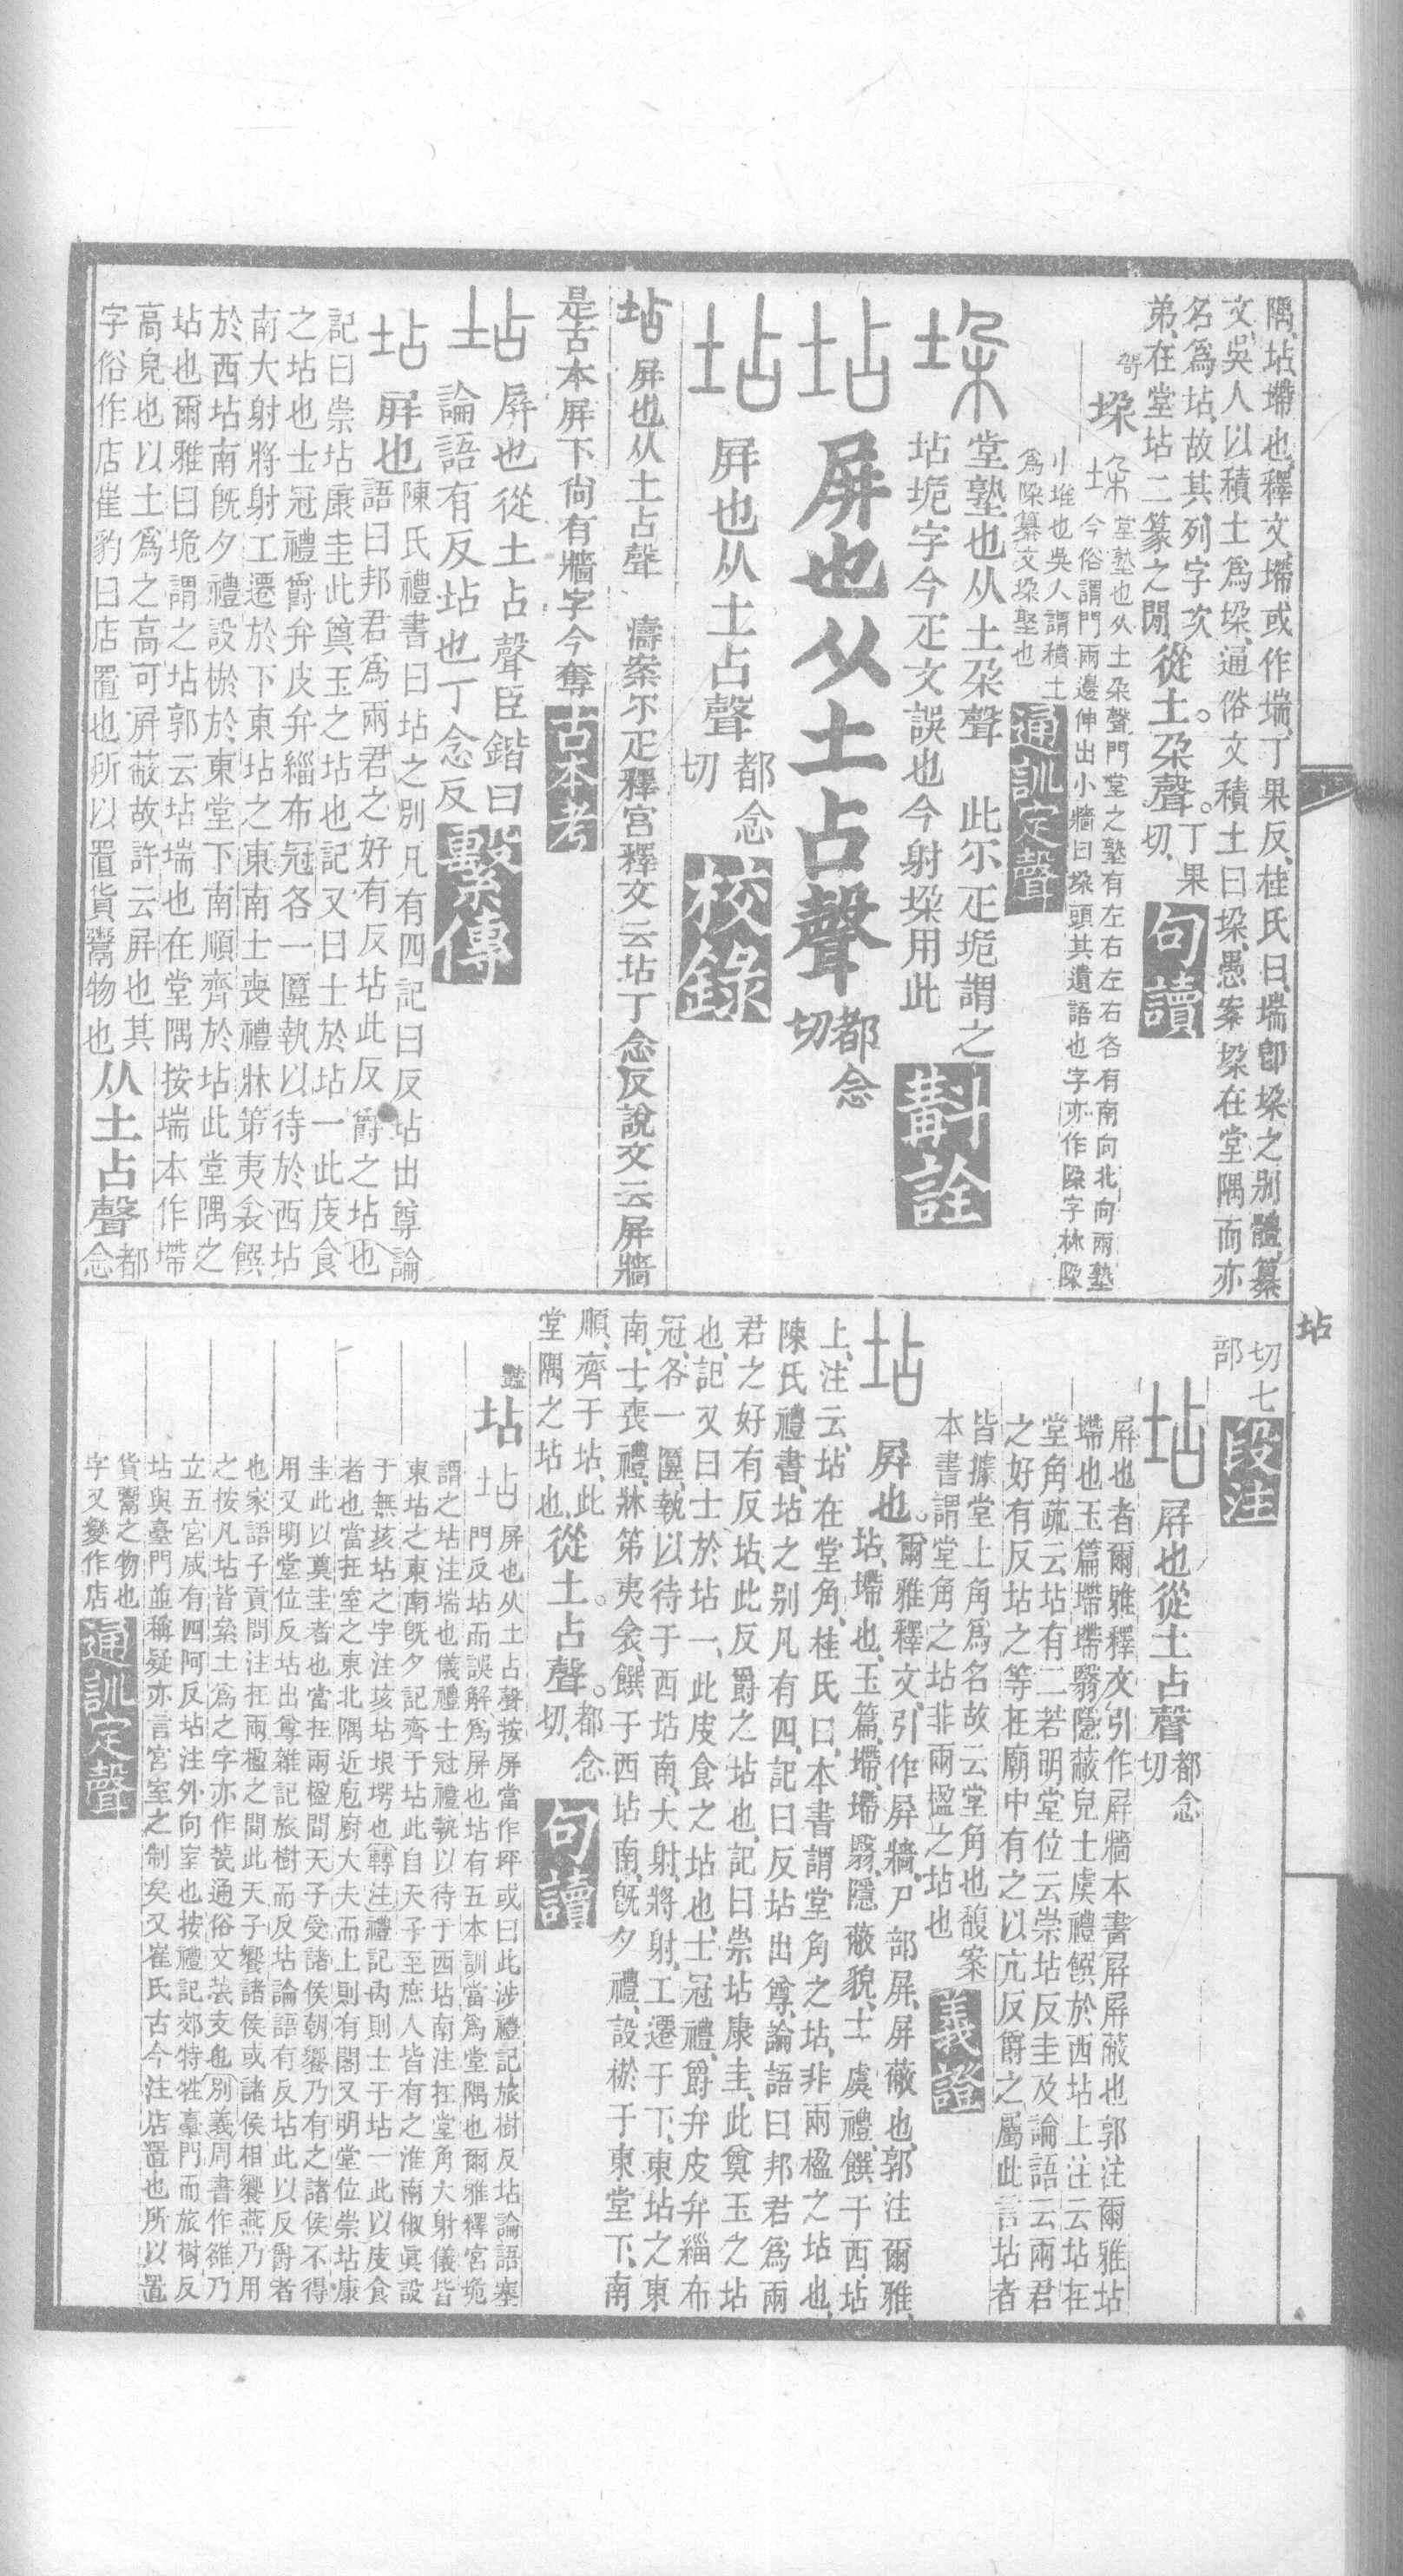 隅、坫墆也、釋文、墆或作㙐、丁果反、桂氏曰、㙐卽垛之別體、纂
文、吳人以積土爲垛、通俗文、積土曰垛、愚案、垛在堂隅、而亦
名爲坫、故其列字次
弟、在堂坫二篆之閒、從土。朶聲。丁果
切、
句讀
垛
堂塾也从土朶聲門堂之塾有左右左右各有南向北向兩塾
今俗謂門兩邊伸出小牆曰垛頭其遺語也字亦作陊字林陊
小堆也吳人謂積土
爲陊纂文垛堅也
通訓定聲
堂塾也从土朶聲 此尒疋垝謂之
坫垝字今疋文誤也今射垛用此
斠詮
坫
屏也从土占聲
都念
切
坫
屛也从土占聲
都念
切
校錄
坫 屏也从土占聲 濤案尒疋釋宮釋文云坫丁念反說文云屏牆
是古本屏下尙有牆字今奪
古本考
坫
屛也從土占聲臣鍇曰
論語有反坫也丁念反
繫傳
坫
屛也
陳氏禮書曰坫之別凡有四記曰反坫出尊論
語曰邦君爲兩君之好有反坫此反爵之坫也
記曰崇坫康圭此奠玉之坫也記又曰士於坫一此庋食
之坫也士冠禮爵弁皮弁緇布冠各一匴執以待於西坫
南大射將射工遷於下東坫之東南士喪禮牀笫夷衾饌
於西坫南旣夕禮設棜於東堂下南順齊於坫此堂隅之
坫也爾雅曰垝謂之坫郭云坫㙐也在堂隅按㙐本作墆
高皃也以土爲之高可屛蔽故許云屛也其
字俗作店崔豹曰店置也所以置貨鬻物也
从土占聲
都念
坫
切七
部
段注
坫
屛也從土占聲
都念
切
屛也者爾雅釋文引作屛牆本書屛屛蔽也郭注爾雅坫
墆也玉篇墆墆翳隱蔽皃士虞禮饌於西坫上注云坫在
堂角疏云坫有二若明堂位云崇坫反圭及論語云兩君
之好有反坫之等在廟中有之以亢反爵之屬此言坫者
皆據堂上角爲名故云堂角也馥案
本書謂堂角之坫非兩楹之坫也
義證
坫
屛也。爾雅釋文、引作屛牆、尸部屛、屛蔽也、郭注爾雅、
坫、墆也、玉篇、墆、墆翳、隱蔽貌、士虞禮、饌于西坫
上、注云、坫在堂角、桂氏曰、本書謂堂角之坫、非兩楹之坫也、
陳氏禮書、坫之別凡有四、記曰反坫出尊、論語曰邦君爲兩
君之好有反坫、此反爵之坫也、記曰崇坫康圭、此奠玉之坫
也、記又曰士於坫一、此庋食之坫也、士冠禮、爵弁皮弁緇布
冠、各一匴、執以待于西坫南、大射、將射、工遷于下、東坫之東
南、士喪禮、牀笫夷衾、饌于西坫南、旣夕禮、設棜于東堂下、南
順、齊于坫、此
堂隅之坫也、從土。占聲。都念
切、
句讀
豔
坫
屛也从土占聲按屛當作坪或曰此涉禮記旅樹反坫論語塞
門反坫而誤解爲屛也坫有五本訓當爲堂隅也爾雅釋宮垝
謂之坫注㙐也儀禮士冠禮執以待于西坫南注在堂角大射儀皆
東坫之東南旣夕記齊于坫此自天子至庶人皆有之淮南俶眞設
于無垓坫之字注垓坫垠堮也轉注禮記內則士于坫一此以庋食
者也當在室之東北隅近庖廚大夫而上則有閣又明堂位崇坫康
圭此以奠圭者也當在兩楹間天子受諸侯朝饗乃有之諸侯不得
用又明堂位反坫出尊雜記旅樹而反坫論語有反坫此以反爵者
也家語子貢問注在兩楹之間此天子饗諸侯或諸侯相饗燕乃用
之按凡坫皆絫土爲之字亦作㙠通俗文㙠支也別義周書作雒乃
立五宮咸有四阿反坫注外向室也按禮記郊特牲臺門而旅樹反
坫與臺門並稱疑亦言宮室之制矣又崔氏古今注店置也所以置
貨鬻之物也
字又變作店
通訓定聲